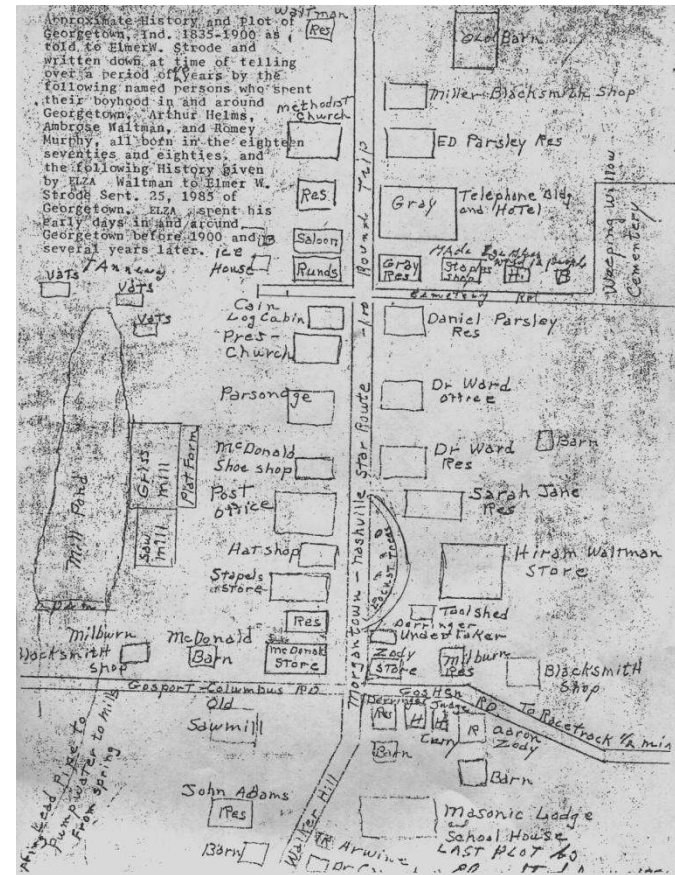 Approximate History and Plot of
Georgetown, Ind. 1835-1900 as
told to Elmer W. Strode and
written down at time of telling
over a period of years by the
following named persons who spent
their boyhood in and around
Georgetown. Arthur Helms,
Ambrose Waltman, and Romey
Murphy, all born in the eighteen
seventies and eighties, and
the following History given
by ELZA Waltman to Elmer W.
Strode Sert. 25, 1985 of
Georgetown. ELZA spent his
Early days in and around
Georgetown before 1900 and
several years later.
Waltman
Res
Old Barn
Miller Blacksmith Shop
methodist
Church
ED Parsley Res
Res.
Gray
Telephone Bldg
and Hotel
Weeping Willow
Cementery
Saloon
ice
House
Runds
Gray
Res
Shop
H.
B
Cementery Rd
TAnnery
VaTs
VaTs
VaTs
Cain
Log Cabin
Daniel Parsley
Res
Pres-
Church
Parsonage
Dr Ward
office
McDonald
Shoe shop
Dr Ward
Res
Barn
Mill Pond
Griss
mill
PlatForm
Saw
mill
Dam
Post
office
Sarah Jane
Res
Hat shop
Hiram Waltman
STore
Stapels
store
Locust Trees
Toolshed
Res
Derringer
Undertaker
Milburn
Blacksmith
shop
McDonald
Barn
McDonald
STore
Zody
store
Milburn
Res
BlacksmitH
Shop
Morgantown - nashville Star Route - Round Trip
Gosport-Columbus RD
GosHen RD
To Racetrack 1/2 min
Old
Sawmill
Derringer
Res
Judge
H
H
Curry
R
aaron
Zody
Barn
Barn
Pipe to
Pump water to mills
From spring
John Adams
Res
Barn
Walker Hill
Masonic Lodge
and
School House
LAST PLOT
Arwine
Dr